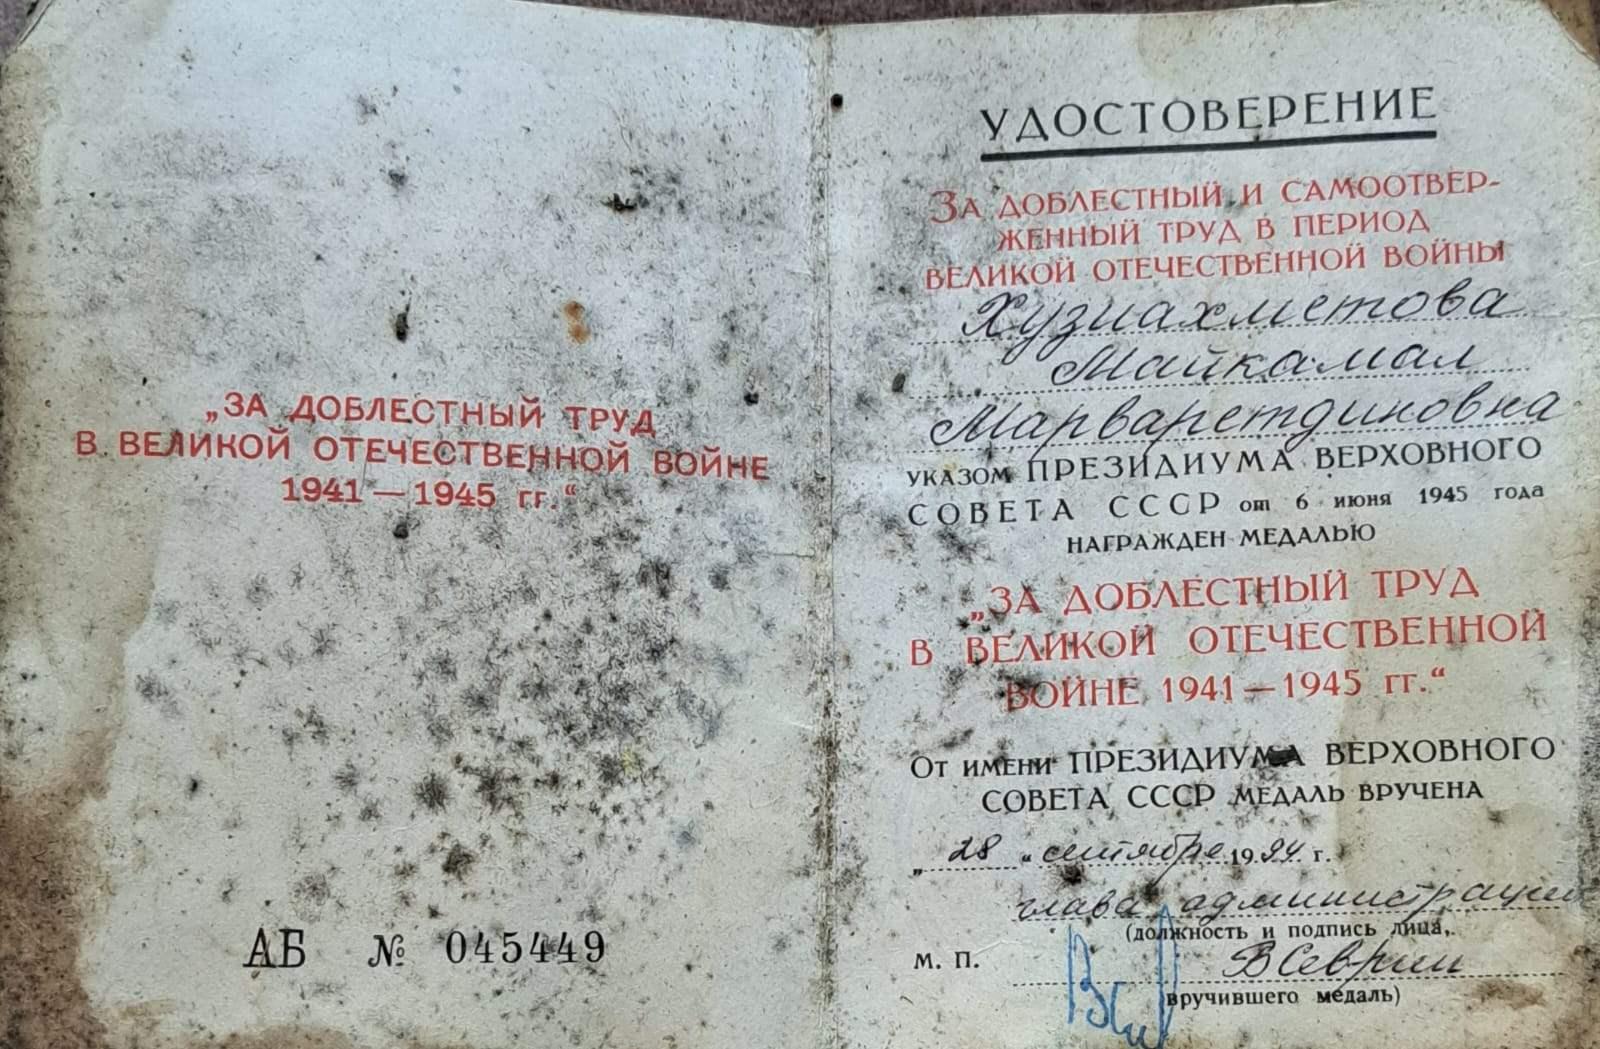 „ЗА ДОБЛЕСТНЫЙ ТРУД
В ВЕЛИКОЙ ОТЕЧЕСТВЕННОЙ ВОЙНЕ
1941 — 1945 гг.“
АБ № 045449
УДОСТОВЕРЕНИЕ
ЗА ДОБЛЕСТНЫЙ И САМООТВЕР-
ЖЕННЫЙ ТРУД В ПЕРИОД
ВЕЛИКОЙ ОТЕЧЕСТВЕННОЙ ВОЙНЫ
Хузиахметова
Майкамал
Марваретдиновна
УКАЗОМ ПРЕЗИДИУМА ВЕРХОВНОГО
СОВЕТА СССР от 6 июня 1945 года
НАГРАЖДЕН МЕДАЛЬЮ
„ЗА ДОБЛЕСТНЫЙ ТРУД
В ВЕЛИКОЙ ОТЕЧЕСТВЕННОЙ
ВОЙНЕ 1941 — 1945 гг.“
ОТ ИМЕНИ ПРЕЗИДИУМА ВЕРХОВНОГО
СОВЕТА СССР МЕДАЛЬ ВРУЧЕНА
„28“ сентября 1994 г.
глава администрации
(должность и подпись лица,
М. П.
вручившего медаль)